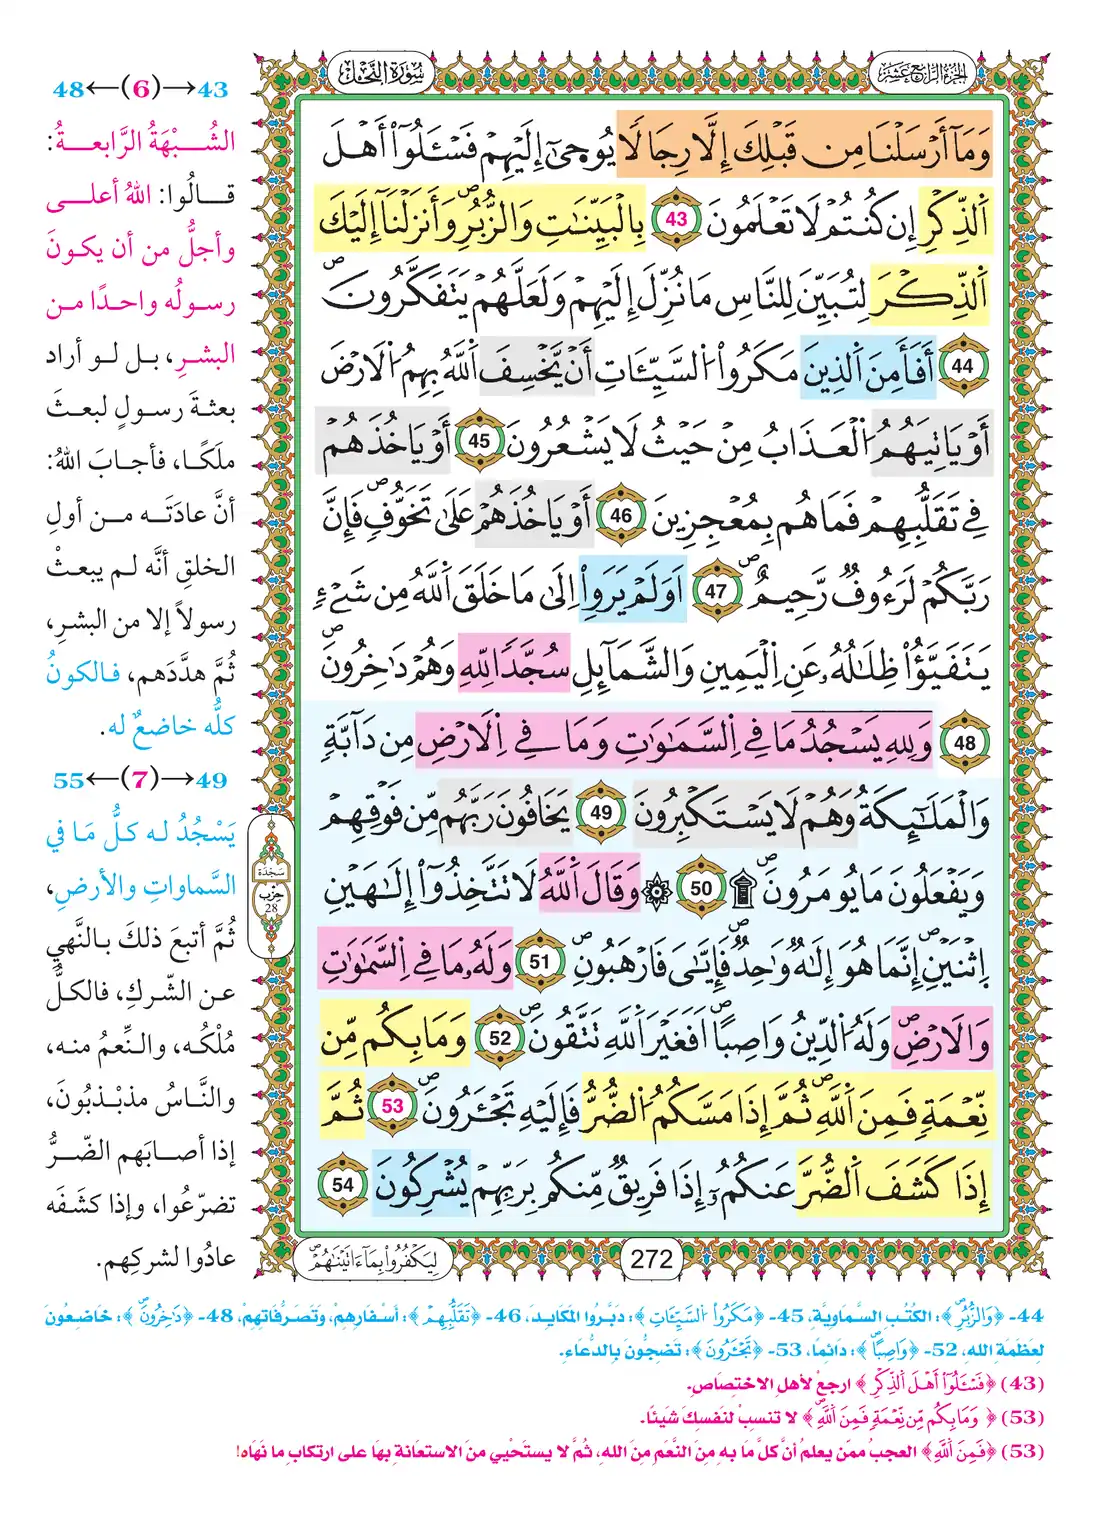 الجزء الرابع عشر
سورة النحل
وَمَآ أَرْسَلْنَا مِن قَبْلِكَ إِلَّا رِجَالًا يُوحَىٰٓ إِلَيْهِمْ فَسْـَٔلُوٓاْ أَهْلَ
اَ۬لذِّكْرِ إِن كُنتُمْ لَا تَعْلَمُونَ 43 بِالْبَيِّنَٰتِ وَالزُّبُرِ وَأَنزَلْنَآ إِلَيْكَ
اَ۬لذِّكْرَ لِتُبَيِّنَ لِلنَّاسِ مَا نُزِّلَ إِلَيْهِمْ وَلَعَلَّهُمْ يَتَفَكَّرُونَ
44 أَفَأَمِنَ اَ۬لذِينَ مَكَرُواْ اُ۬لسَّيِّـَٔاتِ أَنْ يَّخْسِفَ اَ۬للَّهُ بِهِمُ اُ۬لَارْضَ
أَوْ يَاتِيَهُمُ اُ۬لْعَذَابُ مِنْ حَيْثُ لَا يَشْعُرُونَ 45 أَوْ يَاخُذَهُمْ
فِي تَقَلُّبِهِمْ فَمَا هُم بِمُعْجِزِينَ 46 أَوْ يَاخُذَهُمْ عَلَىٰ تَخَوُّفٍ فَإِنَّ
رَبَّكُمْ لَرَءُوفٌ رَّحِيمٌ 47 اَوَلَمْ يَرَوِاْ اِلَىٰ مَا خَلَقَ اَ۬للَّهُ مِن شَےْءٍ
يَتَفَيَّؤُاْ ظِلَٰلُهُۥ عَنِ اِ۬لْيَمِينِ وَالشَّمَآئِلِ سُجَّدًا لِّلهِ وَهُمْ دَٰخِرُونَ
48 وَلِلهِ يَسْجُدُ مَا فِي اِ۬لسَّمَٰوَٰتِ وَمَا فِي اِ۬لَارْضِ مِن دَآبَّةٍ
وَالْمَلَٰٓئِكَةُ وَهُمْ لَا يَسْتَكْبِرُونَ 49 يَخَافُونَ رَبَّهُم مِّن فَوْقِهِمْ
وَيَفْعَلُونَ مَا يُومَرُونَ ۩ 50 ۞ وَقَالَ اَ۬للَّهُ لَا تَتَّخِذُوٓاْ إِلَٰهَيْنِ
اِ۪ثْنَيْنِ إِنَّمَا هُوَ إِلَٰهٌ وَٰحِدٌ فَإِيَّٰىَ فَارْهَبُونِ 51 وَلَهُۥ مَا فِي اِ۬لسَّمَٰوَٰتِ
وَالَارْضِ وَلَهُ اُ۬لدِّينُ وَاصِبًا اَفَغَيْرَ اَ۬للَّهِ تَتَّقُونَ 52 وَمَا بِكُم مِّن
نِّعْمَةٍ فَمِنَ اَ۬للَّهِ ثُمَّ إِذَا مَسَّكُمُ اُ۬لضُّرُّ فَإِلَيْهِ تَجْـَٔرُونَ 53 ثُمَّ
إِذَا كَشَفَ اَ۬لضُّرَّ عَنكُمُۥٓ إِذَا فَرِيقٌ مِّنكُم بِرَبِّهِمْ يُشْرِكُونَ 54
272
لِيَكْفُرُواْ بِمَآ ءَاتَيْنَٰهُمْ
سَجْدَة
حِزْب
28
43→(6)←48
الشُّبْهَةُ الرَّابعةُ:
قالُوا: اللهُ أعلى
وأجلُّ من أن يكونَ
رسولُه واحدًا من
البشرِ، بل لو أراد
بعثةَ رسولٍ لبعثَ
ملَكًا، فأجابَ اللهُ:
أنَّ عادَتَه من أولِ
الخلقِ أنَّه لم يبعثْ
رسولاً إلا من البشرِ،
ثُمَّ هدَّدَهم، فالكونُ
كلُّه خاضعٌ له.
49→(7)←55
يَسْجُدُ له كلُّ مَا في
السَّماواتِ والأرضِ،
ثُمَّ أتبعَ ذلكَ بالنَّهيِ
عن الشّركِ، فالكلُّ
مُلْكُه، والنِّعمُ منه،
والنَّاسُ مذبْذبُونَ،
إذا أصابَهم الضّرُّ
تضرّعُوا، وإذا كشفَه
عادُوا لشركِهم.
44- ﴿وَالزُّبُرِ﴾: الكُتُبِ السَّماويَّةِ، 45- ﴿مَكَرُواْ اُ۬لسَّيِّـَٔاتِ﴾: دبَّرُوا المَكايدَ، 46- ﴿تَقَلُّبِهِمْ﴾: أسْفَارِهِمْ، وتَصَرُّفاتِهِمْ، 48- ﴿دَٰخِرُونَ﴾: خَاضعُونَ
لعظَمَةِ اللهِ، 52- ﴿وَاصِبًا﴾: دَائِمًا، 53- ﴿تَجْـَٔرُونَ﴾: تَضجُّونَ بِالدُّعَاءِ.
(43) ﴿فَسْـَٔلُوٓاْ أَهْلَ اَ۬لذِّكْرِ﴾ ارجعْ لأهلِ الاختصَاصِ.
(53) ﴿وَمَا بِكُم مِّن نِّعْمَةٍ فَمِنَ اَ۬للَّهِ﴾ لا تنسبْ لنفسِكَ شَيئًا.
(53) ﴿فَمِنَ اَ۬للَّهِ﴾ العجبُ ممّن يعلمُ أنَّ كلَّ مَا به مِنَ النَّعَمِ مِنَ اللهِ، ثمَّ لا يستَحْيِي منَ الاستعَانةِ بهَا على ارتكابِ ما نهَاه!